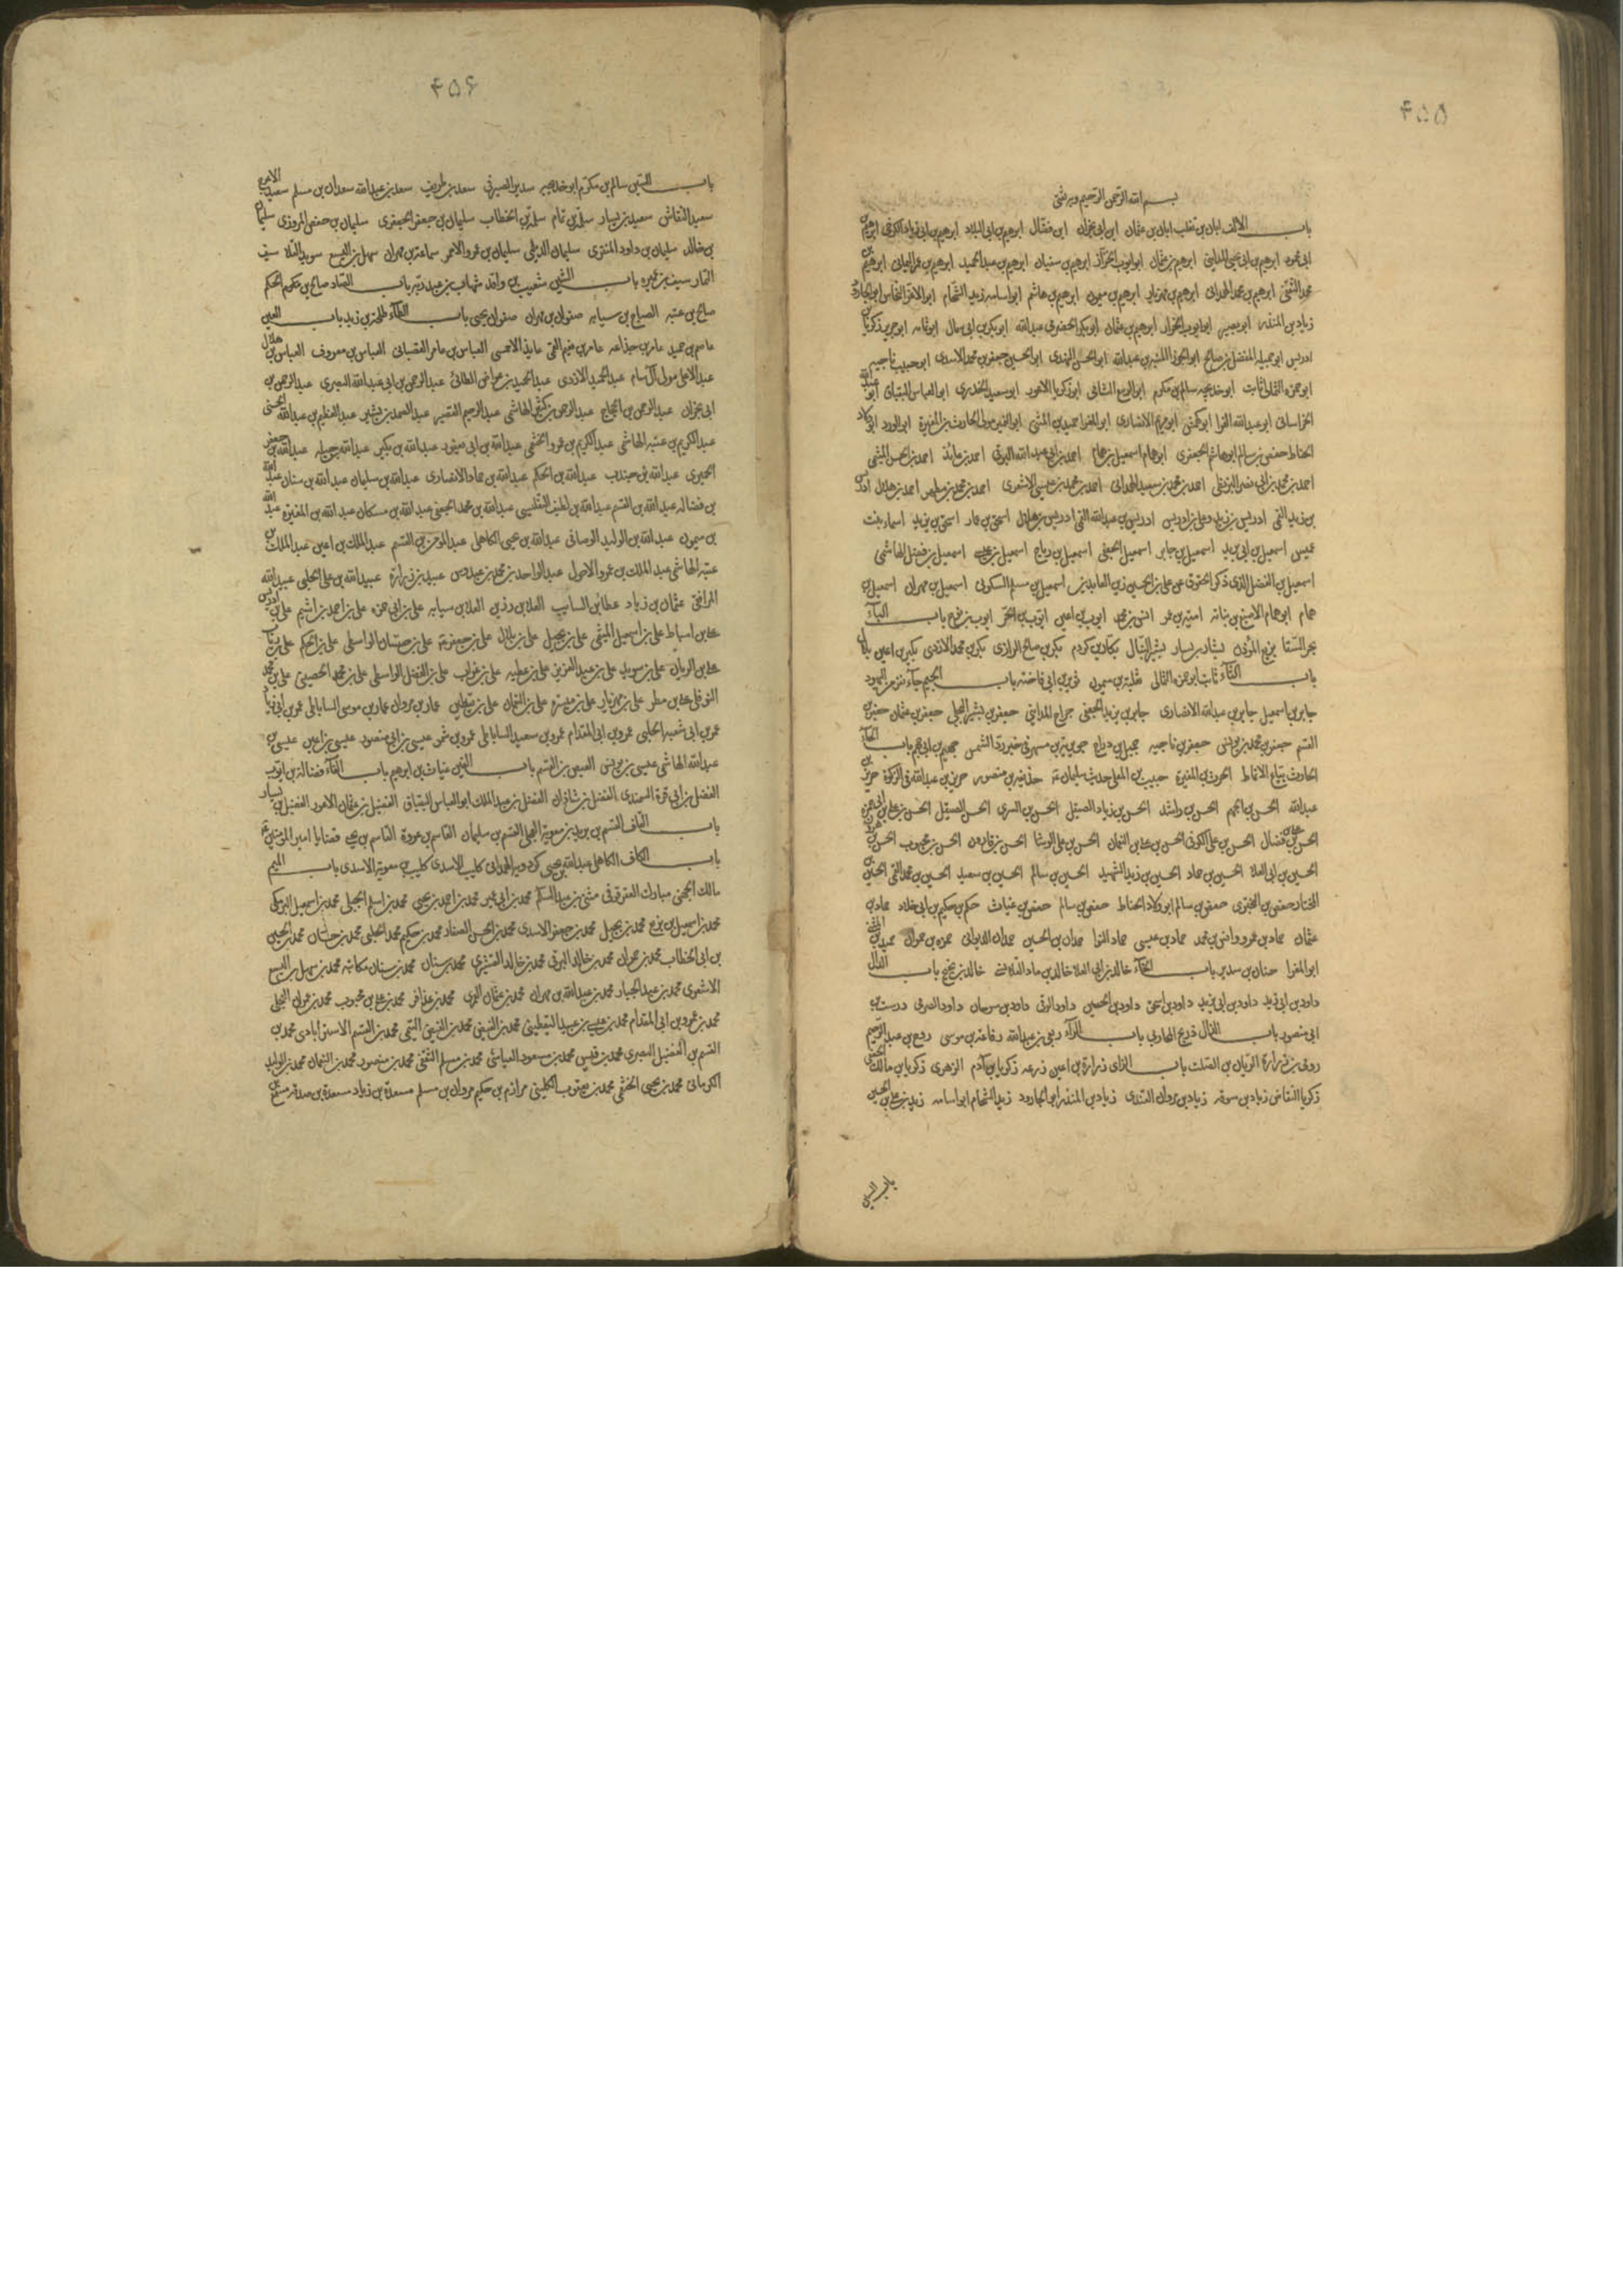 ۴۵۵
بسم الله الرحمن الرحیم وبه ثقتی
باب الالف ابان بن تغلب ابان بن عثمان ابن ابی نجران ابن مفضال ابرهیم بن ابی البلاد ابرهیم بن ابی زیاد الکرخی ابرهیم بن
ابی محمود ابرهیم بن ابی یحیی المداینی ابرهیم بن عثمان ابوایوب الخزاز ابرهیم بن سفیان ابرهیم بن عبد الحمید ابرهیم بن عمر الیمانی ابرهیم بن
محمد الثقفی ابرهیم بن محمد الهمدانی ابرهیم بن مهزیار ابرهیم بن میمون ابرهیم بن هاشم ابو اسامه زید الشحام ابو الاغر النحاس ابو الجارود
زیاد بن المنذر ابو بصیر ابو ایوب الخزاز ابرهیم بن عثمان ابو بکر الحضرمی عبد الله ابو بکر بن ابی سمال ابو ثمامه ابو جریر زکریا بن
ادریس ابو جمیله المفضل بن صالح ابو الجوزا المنبه بن عبد الله ابو الحسن النهدی ابو الحسین جعفر بن محمد الاسدی ابو حبیب ناجیه
ابو حمزه الثمالی ثابت ابو خدیجه سالم بن مکرم ابو الربیع الشامی ابو زکریا الاعور ابو سعید الخدری ابو العباس البقباق ابو عبد الله
الخراسانی ابو عبد الله الفرا ابو کهمس ابو مریم الانصاری ابو المغرا حمید بن المثنی ابو النمیر مولی الحارث بن المغیرة ابو الورد ابو ولاد
الحناط حفص بن سالم ابو هاشم الجعفری ابو همام اسمعیل بن همام احمد بن ابی عبد الله البرقی احمد بن عائذ احمد بن الحسن المیثمی
احمد بن محمد بن ابی نصر البزنطی احمد بن محمد بن سعید الهمدانی احمد بن محمد بن عیسی الاشعری احمد بن محمد بن مطهر احمد بن هلال ادریس
بن زید القمی ادریس بن زید وعلی بن ادریس ادریس بن عبد الله القمی ادریس بن هلال اسحق بن عمار اسحق بن یزید اسماء بنت
عمیس اسمعیل بن ابی یزید اسمعیل بن جابر اسمعیل الجعفی اسمعیل بن رباح اسمعیل بن عیسی اسمعیل بن فضل الهاشمی
اسمعیل بن الفضل الذی ذکر الحقوق عن علی بن الحسین زین العابدین اسمعیل بن مسلم السکونی اسمعیل بن مهران اسمعیل بن
همام ابو همام الاصبغ بن نباته امیة بن عمرو انس بن محمد ایوب بن اعین ایوب بن الحر ایوب بن نوح باب الباء
بحر السقا بزیع المؤذن بشار بن یسار بشیر النبال بکار بن کردم بکر بن صالح الرازی بکر بن محمد الازدی بکیر بن اعین بلال
باب الثاء ثابت ابو حمزه الثمالی ثعلبة بن میمون ثویر بن ابی فاخته باب الجیم جاء نفر من الیهود
جابر بن اسمعیل جابر بن عبد الله الانصاری جابر بن یزید الجعفی جراح المداینی جعفر بن بشیر البجلی جعفر بن عثمان جعفر بن
القسم جعفر بن محمد بن یونس جعفر بن ناجیه جمیل بن دراج جویریة بن مسهر فی خبر رد الشمس جهیم بن ابی جهم باب الحاء
الحارث بیاع الانماط الحرث بن المغیرة حبیب بن المعلی حدیث سلیمان حذیفة بن منصور حریز بن عبد الله فی الزکوة حریز بن
عبد الله الحسن بن الجهم الحسن بن راشد الحسن بن زیاد الصیقل الحسن بن السری الحسن الصیقل الحسن بن علی بن ابی حمزه
الحسن بن علی بن فضال الحسن بن علی الکوفی الحسن بن علی بن النعمان الحسن بن علی الوشا الحسن بن قارون الحسن بن محبوب الحسن بن هرون
الحسین بن ابی العلا الحسین بن حماد الحسین بن زید الشهید الحسین بن سالم الحسین بن سعید الحسین بن محمد القمی الحسین بن
المختار حفص بن البختری حفص بن سالم ابو ولاد الحناط حفص بن سالم حفص بن غیاث حکم بن حکیم بن ابی خلاد حماد بن
عثمان حماد بن عمرو وانس بن محمد حماد بن عیسی حماد النوا حمدان بن الحسین حمدان الدیوانی حمزه بن حمران حمید بن المثنی
ابو المغرا حنان بن سدیر باب الخاء خالد بن ابی العلا خالد بن ماد القلانسی خالد بن نجیح باب الدال
داود بن ابی زید داود بن ابی یزید داود بن اسحق داود بن الحصین داود الرقی داود بن سرحان داود الصرمی درست بن
ابی منصور باب الذال ذریح المحاربی باب الراء ربعی بن عبد الله رفاعة بن موسی روح بن عبد الرحیم
رومی بن زرارة الریان بن الصلت باب الزای زرارة بن اعین زرعه زکریا بن آدم الزهری زکریا بن مالک الجعفی
زکریا النقاض زیاد بن سوقه زیاد بن مروان القندی زیاد بن المنذر ابو الجارود زید الشحام ابو اسامه زید بن علی بن الحسین
باب السین
۴۵۶
باب السین سالم بن مکرم ابو خدیجه سدیر الصیرفی سعد بن طریف سعد بن عبد الله سعدان بن مسلم سعید الاعرج
سعید النقاش سعید بن یسار سلمة بن تمام سلمة بن الخطاب سلیمان بن جعفر الجعفری سلیمان بن حفص المروزی سلیمان
بن خالد سلیمان بن داود المنقری سلیمان الدیلمی سلیمان بن عمرو الاحمر سماعة بن مهران سهل بن الیسع سوید القلا سیف
التمار سیف بن عمیره باب الشین شعیب بن واقد شهاب بن عبد ربه باب الصاد صالح بن الحکم
صالح بن عقبه الصباح بن سیابه صفوان بن مهران صفوان بن یحیی باب الطاء طلحة بن زید باب العین
عاصم بن حمید عامر بن جذاعه عامر بن نعیم القمی عایذ الاحمسی العباس بن عامر القصبانی العباس بن معروف العباس بن هلال
عبد الاعلی مولی آل سام عبد الحمید الازدی عبد الحمید بن عواض الطائی عبد الرحمن بن ابی عبد الله البصری عبد الرحمن بن
ابی نجران عبد الرحمن بن الحجاج عبد الرحمن بن کثیر الهاشمی عبد الرحیم القصیر عبد الصمد بن بشیر عبد العظیم بن عبد الله الحسنی
عبد الکریم بن عتبه الهاشمی عبد الکریم بن عمرو الخثعمی عبد الله بن ابی یعفور عبد الله بن بکیر عبد الله بن جبله عبد الله بن جعفر
الحمیری عبد الله بن جندب عبد الله بن الحکم عبد الله بن حماد الانصاری عبد الله بن سلیمان عبد الله بن سنان عبد الله
بن فضاله عبد الله بن القسم عبد الله بن لطیف التفلیسی عبد الله بن محمد الجعفی عبد الله بن مسکان عبد الله بن المغیره عبد الله
بن میمون عبد الله بن الولید الوصافی عبد الله بن یحیی الکاهلی عبد المومن بن القسم عبد الملک بن اعین عبد الملک بن
عتبه الهاشمی عبد الملک بن عمرو الاحول عبد الواحد بن محمد بن عبدوس عبید بن زرارة عبید الله بن علی الحلبی عبید الله
المرافقی عثمان بن زیاد عطا بن السایب العلا بن رزین العلا بن سیابه علی بن ابی حمزه علی بن احمد بن اشیم علی بن ادریس
علی بن اسباط علی بن اسمعیل المیثمی علی بن بجیل علی بن بلال علی بن جعفر علی بن حسان الواسطی علی بن الحکم علی بن رئاب
علی بن الریان علی بن سوید علی بن عبد العزیز علی بن عطیه علی بن غراب علی بن الفضل الواسطی علی بن محمد الحصینی علی بن محمد
النوفلی علی بن مطر علی بن مهزیار علی بن میسرة علی بن النعمان علی بن یقطین عمار بن مروان عمار بن موسی الساباطی عمر بن ابی زیاد
عمر بن ابی شعبه الحلبی عمرو بن ابی المقدام عمرو بن سعید الساباطی عمرو بن شمر عیسی بن ابی منصور عیسی بن اعین عیسی بن
عبد الله الهاشمی عیسی بن یونس العیص بن القسم باب الغین غیاث بن ابرهیم باب الفاء فضالة بن ایوب
الفضل بن ابی قرة السمندی الفضل بن شاذان الفضل بن عبد الملک ابو العباس البقباق الفضیل بن عثمان الاعور الفضیل بن یسار
باب القاف القسم بن برید بن معویة العجلی القسم بن سلیمان القاسم بن عروة القاسم بن یحیی قضایا امیر المومنین
باب الکاف الکاهلی عبد الله بن یحیی کردویه الهمدانی کلیب الاسدی کلیب بن معویة الاسدی باب المیم
مالک الجهنی مبارک العقرقوفی مثنی بن عبد السلام محمد بن ابی عمیر محمد بن احمد بن یحیی محمد بن اسلم الجبلی محمد بن اسمعیل البرمکی
محمد بن اسمعیل بن بزیع محمد بن بجیل محمد بن جعفر الاسدی محمد بن الحسن الصفار محمد بن حکیم محمد الحلبی محمد بن حسان محمد بن الحسین
بن ابی الخطاب محمد بن حمران محمد بن خالد البرقی محمد بن خالد القسری محمد بن سنان محمد بن سنان مکاتبه محمد بن سهل بن الیسع
الاشعری محمد بن عبد الجبار محمد بن عبد الله بن مهران محمد بن عثمان العمری محمد بن عذافر محمد بن علی بن محبوب محمد بن عمران العجلی
محمد بن عمرو بن ابی المقدام محمد بن عیسی بن عبید الیقطینی محمد بن الفیض محمد بن الفیض التیمی محمد بن القسم الاسترابادی محمد بن
القسم بن الفضیل البصری محمد بن قیس محمد بن مسعود العیاشی محمد بن مسلم الثقفی محمد بن منصور محمد بن النعمان محمد بن الولید
الکرمانی محمد بن یحیی الخثعمی محمد بن یعقوب الکلینی مرازم بن حکیم مروان بن مسلم مسعدة بن زیاد مسعدة بن صدقه مسمع بن